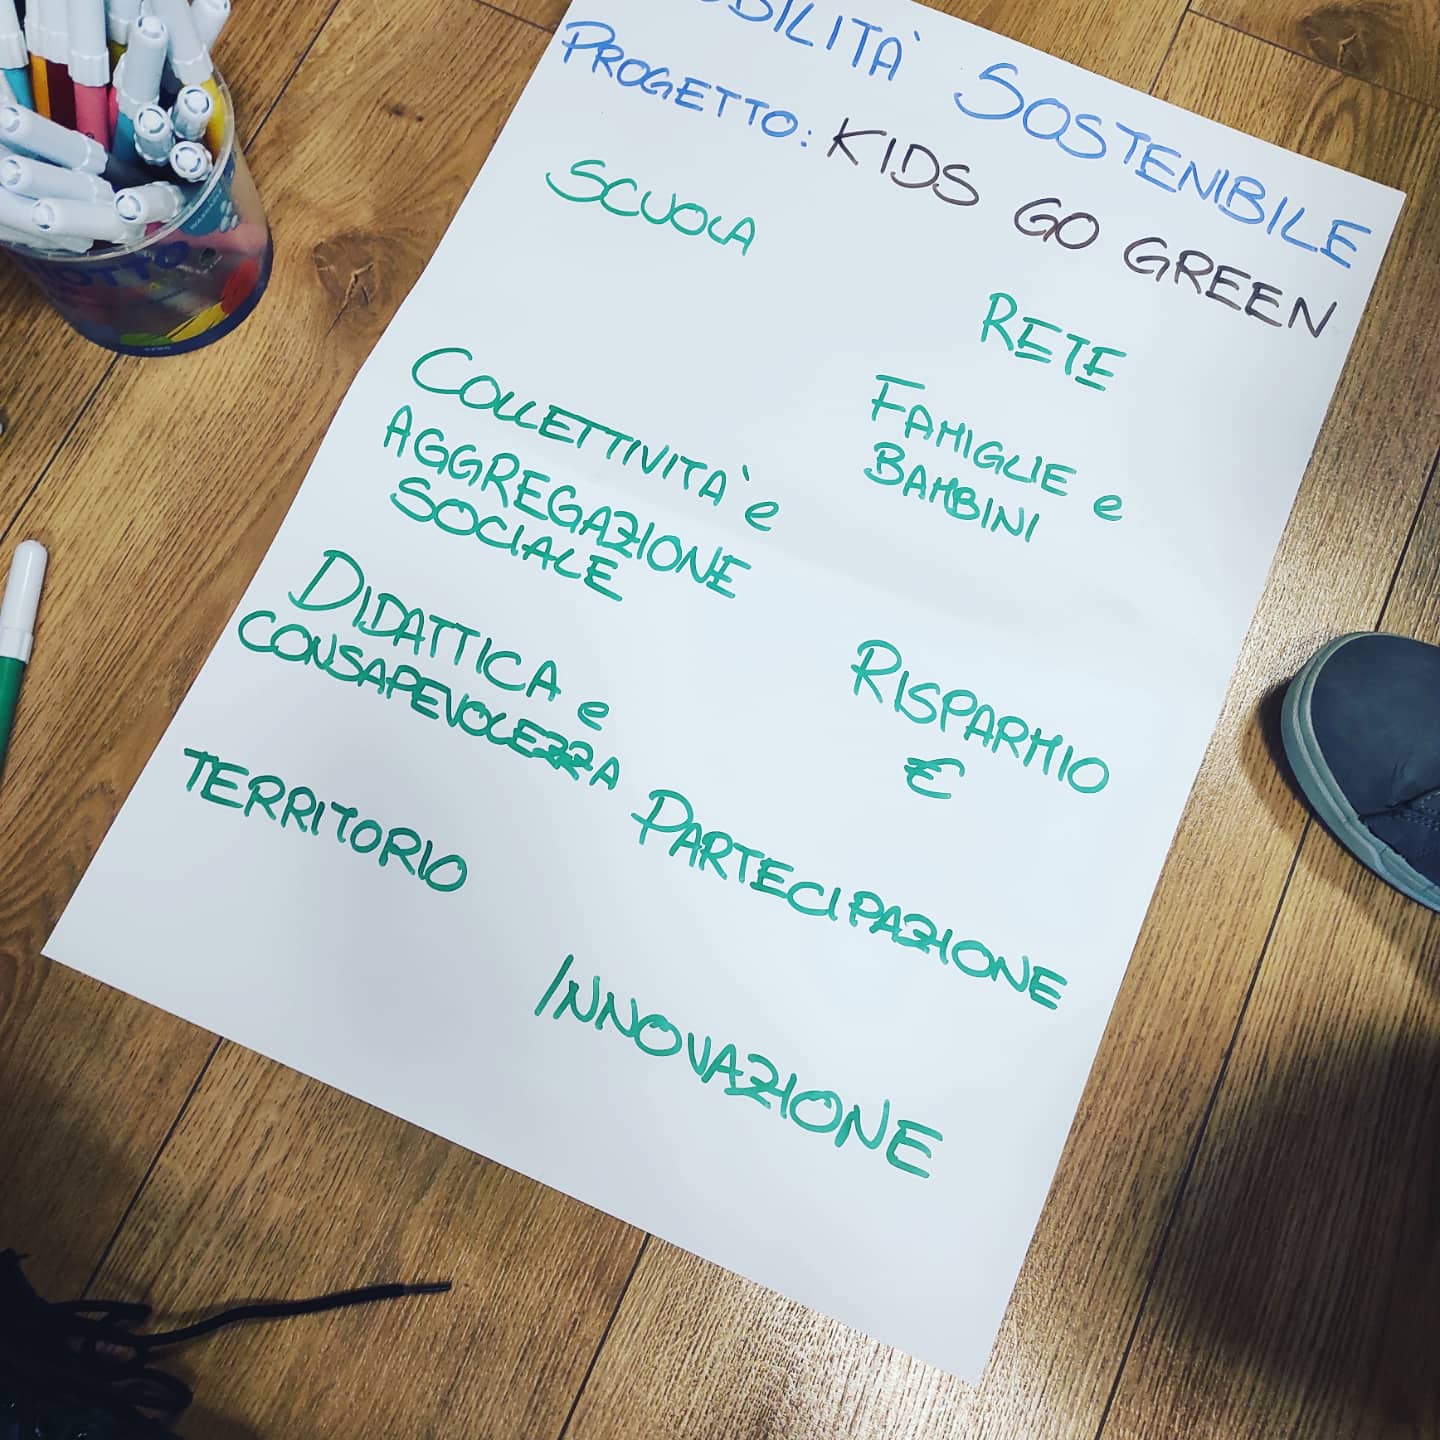 MOBILITÀ SOSTENIBILE
PROGETTO: KIDS GO GREEN
SCUOLA
RETE
FAMIGLIE e
BAMBINI
COLLETTIVITÀ e
AGGREGAZIONE
SOCIALE
DIDATTICA e
CONSAPEVOLEZZA
RISPARMIO
€
TERRITORIO
PARTECIPAZIONE
INNOVAZIONE